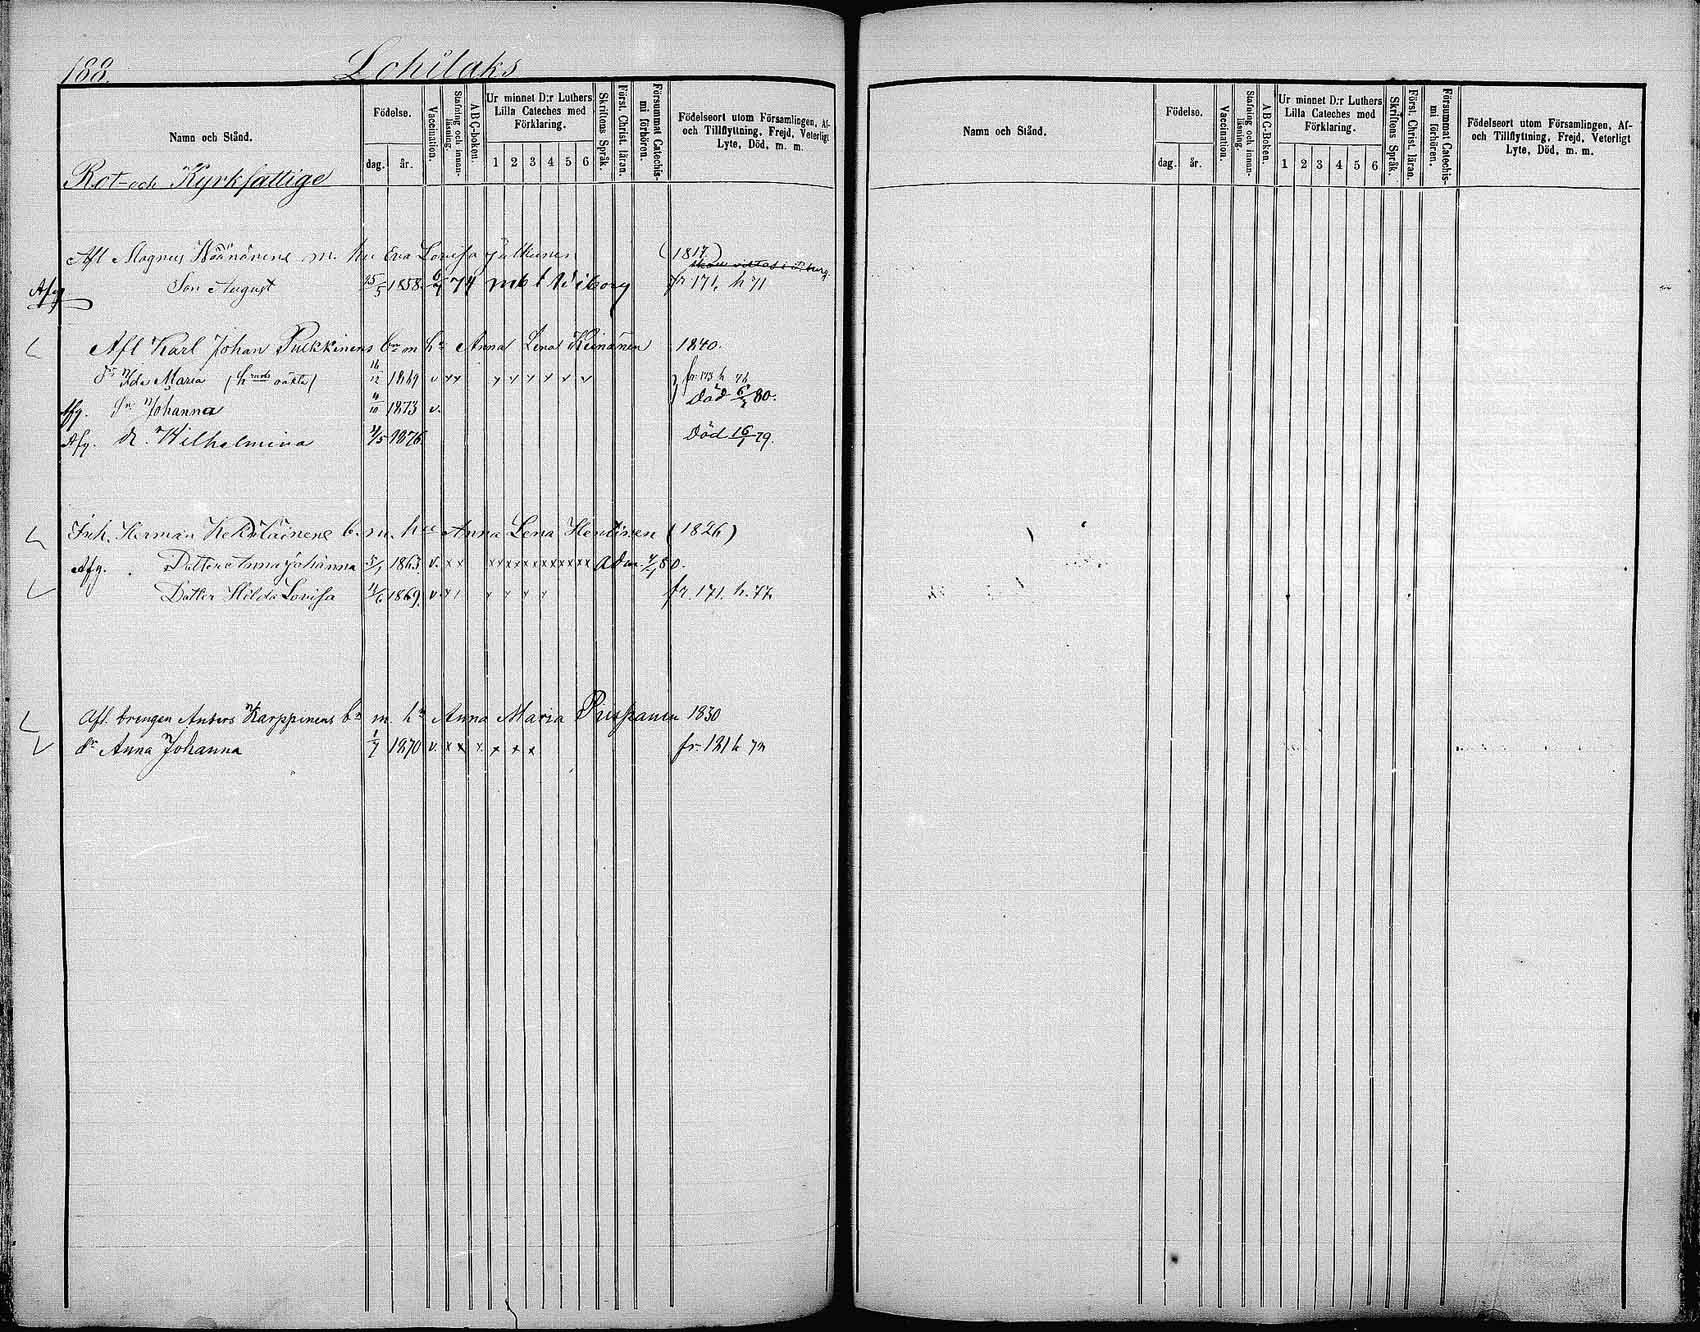 188. Lohilaks
Namn och Stånd. Födelse. dag. år. Vaccination. Stafning och innan-läsning. ABC-boken. Ur minnet D:r Luthers Lilla Cateches med Förklaring. 1 2 3 4 5 6 Skriftens Språk. Först. Christ. läran. Försummat Catechis-mi förhören. Födelseort utom Församlingen, Af- och Tillflyttning, Frejd, Veterligt Lyte, Död, m. m.
Rot- och Kyrkfattige
Afl Magnus m. hu Eva Lovisa (1817)
Afg Son August 25/5 1858. 74 mb t Wiborg fr 171. h 71
Afl Karl Johan Pulkkinens bn m hu Anna Lena Keinänen 1840.
dr Ida Maria (hrnds oäkta) 16/12 1869 v fr. 173 h 76
Afg. Johanna 4/10 1873 v. Död 80.
Afg. d. Wilhelmina 1876. Död 16/1 79.
Inh. Herman b. m. hu Anna Lena (1826)
Afg. Dotter Anna Johanna 5/1 1863. v. x x x x x x x x x x x x Adm. 80.
Dotter Hilda Lovisa 1869. v fr. 171. h. 77.
Afl. drengen Anders Karppinens bn m. hu Anna Maria 1830
dr Anna Johanna 1/7 1870 v. x x x x x x fr. 121 h 72
Namn och Stånd. Födelse. dag. år. Vaccination. Stafning och innan-läsning. ABC-Boken. Ur minnet D:r Luthers Lilla Cateches med Förklaring. 1 2 3 4 5 6 Skriftens Språk. Först. Christ. läran. Försummat Catechis-mi förhören. Födelseort utom Församlingen, Af- och Tillflyttning, Frejd, Veterligt Lyte, Död, m. m.